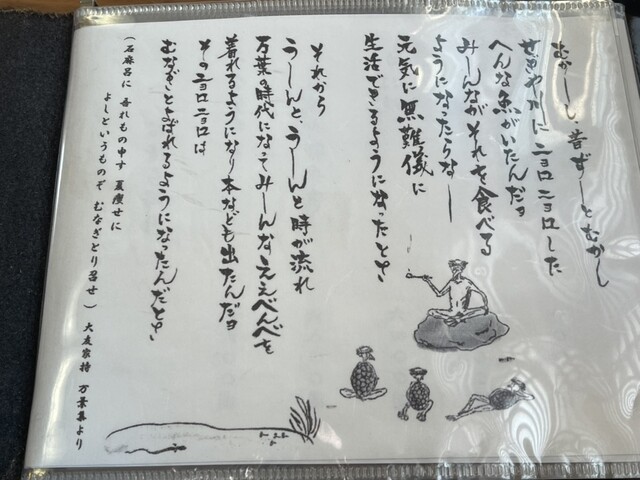 むかーし、昔ずーとむかし
せきや川にニョロニョロした
へんな魚がいたんだヨ
みーんながそれを食べる
ようになったらなー
元気に無難儀に
生活できるようになったとさ
それから
うーんと、うーんと時が流れ
万葉の時代になってみーんなええべんべを
着れるようになり本なども出たんだヨ
そのニョロニョロは
むなぎとよばれるようになったんだとさ
(石麻呂に 吾れもの申す 夏痩せに
よしというものぞ むなぎとり召せ) 大友家持 万葉集より